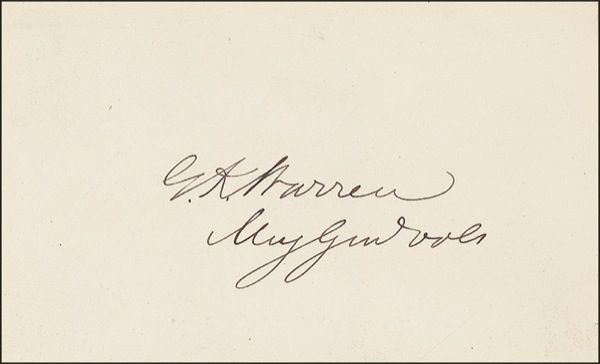 G. K. Warren
Maj Gen Vols